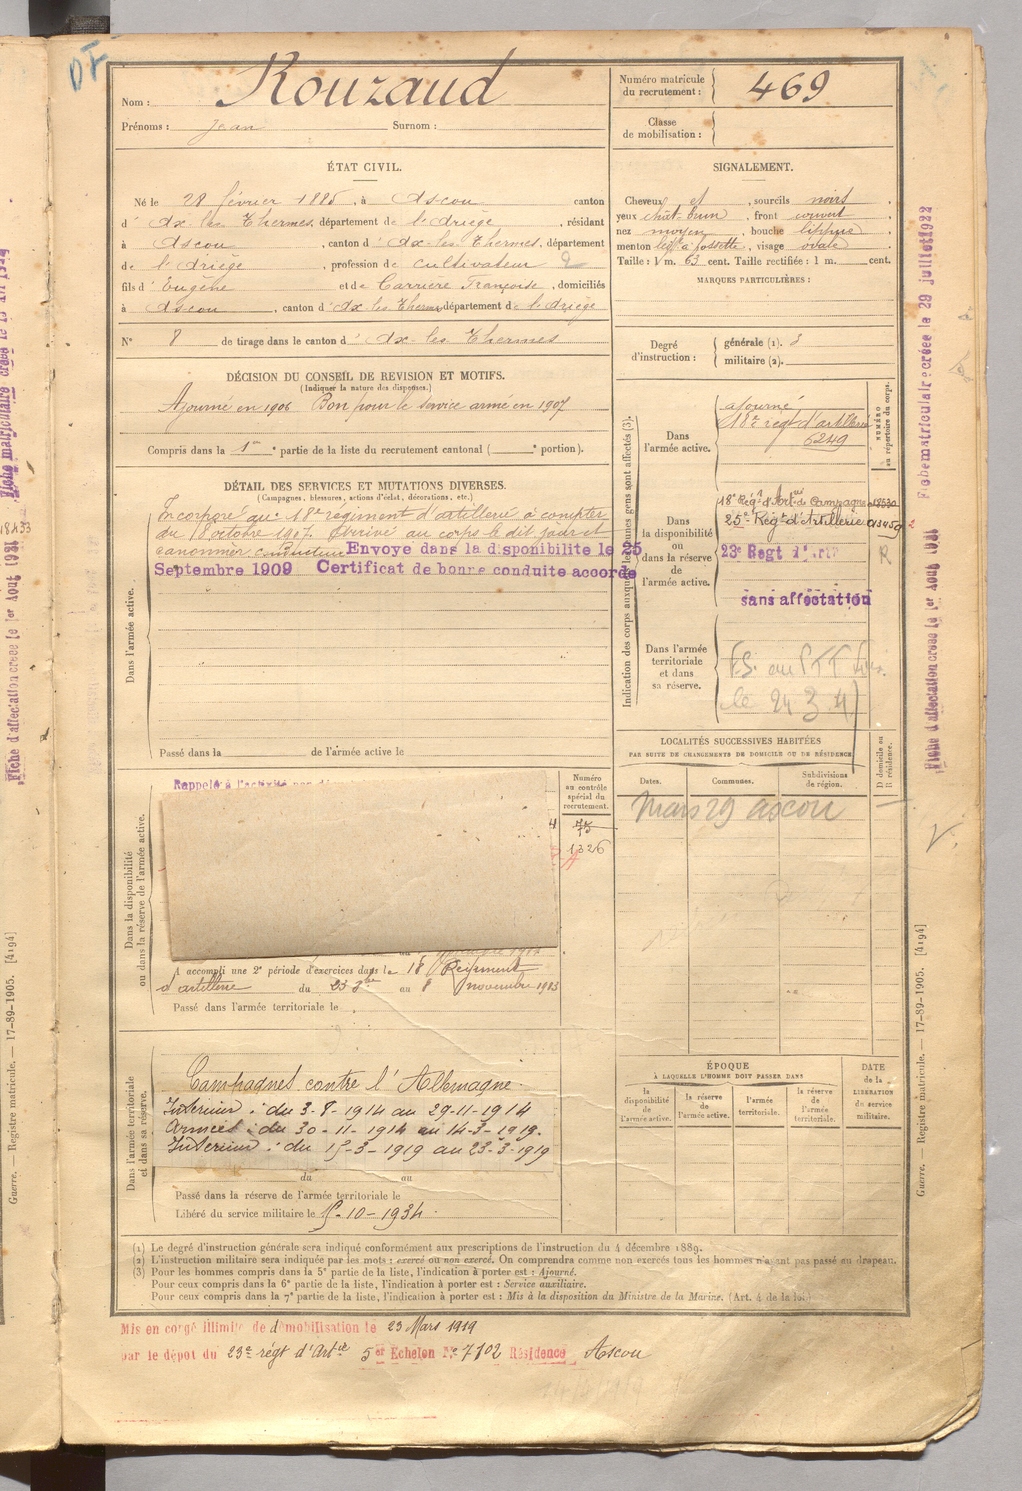 DF
Nom : Rouzaud
Prénoms : Jean Surnom :
Numéro matricule du recrutement : 469
Classe de mobilisation :
ÉTAT CIVIL.
Né le 28 février 1885, à Ascou canton
d'Ax-les-Thermes, département de l'Ariège, résidant
à Ascou, canton d'Ax-les-Thermes, département
de l'Ariège, profession de cultivateur 2
fils d'Eugène et de Carrière Françoise, domiciliés
à Ascou, canton d'Ax-les-Thermes, département de l'Ariège
N° 8 de tirage dans le canton d'Ax-les-Thermes
SIGNALEMENT.
Cheveux et, sourcils noirs,
yeux chât-brun, front couvert,
nez moyen, bouche lippue,
menton à fossette, visage ovale
Taille : 1 m. 63 cent. Taille rectifiée : 1 m. cent.
MARQUES PARTICULIÈRES :
Degré d'instruction : générale (1). 3
militaire (2).
DÉCISION DU CONSEIL DE REVISION ET MOTIFS.
(Indiquer la nature des dispenses.)
Ajourné en 1906 Bon pour le service armé en 1907
Compris dans la 1re partie de la liste du recrutement cantonal ( e portion).
DÉTAIL DES SERVICES ET MUTATIONS DIVERSES.
(Campagnes, blessures, actions d'éclat, décorations, etc.)
Dans l'armée active.
Incorporé au 18e régiment d'artillerie à compter
du 18 octobre 1907. Arrivé au corps le dit jour et
canonnier conducteur Envoye dans la disponibilite le 25
Septembre 1909 Certificat de bonne conduite accorde
Passé dans la de l'armée active le
Indication des corps auxquels les jeunes gens sont affectés (3).
NUMÉRO au répertoire du corps.
Dans l'armée active.
ajourné
18e regt d'artillerie
6249
Dans la disponibilité ou dans la réserve de l'armée active.
18e Régt d'Artie de Campagne
25e Régt d'Artillerie
23e Regt d'Arti
R
sans affectation
Dans l'armée territoriale et dans sa réserve.
F.S. au PTT
le 24 3 41
LOCALITÉS SUCCESSIVES HABITÉES
PAR SUITE DE CHANGEMENTS DE DOMICILE OU DE RÉSIDENCE.
D domicile ou R résidence.
Dates. Communes. Subdivisions de région.
Mars 29 Ascou
Dans la disponibilité ou dans la réserve de l'armée active.
Rappelé à l'activité
Numéro au contrôle spécial du recrutement.
1326
A accompli une 2e période d'exercices dans le 18e Régiment
d'artillerie du 23 8bre au 8 novembre 1913
Passé dans l'armée territoriale le
Dans l'armée territoriale et dans sa réserve.
Campagnes contre l'Allemagne.
Intérieur : du 3-8-1914 au 29-11-1914
Armées : du 30-11-1914 au 14-3-1919.
Intérieur : du 15-3-1919 au 23-3-1919
du au
Passé dans la réserve de l'armée territoriale le
Libéré du service militaire le 15-10-1934.
ÉPOQUE
À LAQUELLE L'HOMME DOIT PASSER DANS
la disponibilité de l'armée active.
la réserve de l'armée active.
l'armée territoriale.
la réserve de l'armée territoriale.
DATE de la LIBÉRATION du service militaire.
(1) Le degré d'instruction générale sera indiqué conformément aux prescriptions de l'instruction du 4 décembre 1889.
(2) L'instruction militaire sera indiquée par les mots : exercé ou non exercé. On comprendra comme non exercés tous les hommes n'ayant pas passé au drapeau.
(3) Pour les hommes compris dans la 5e partie de la liste, l'indication à porter est : Ajourné.
Pour ceux compris dans la 6e partie de la liste, l'indication à porter est : Service auxiliaire.
Pour ceux compris dans la 7e partie de la liste, l'indication à porter est : Mis à la disposition du Ministre de la Marine. (Art. 4 de la loi.)
Mis en congé illimité de démobilisation le 23 Mars 1919
par le dépot du 23e régt d'Artie 5e Echelon No 7102 Résidence Ascou
Fiche matriculaire créée le 29 juillet 1922
Fiche d'affectation créée le 1er Aout 1931
Guerre. — Registre matricule. — 17-89-1905. [4194]
Fiche d'affectation créée le 1er Aout 1931
Guerre. — Registre matricule. — 17-89-1905. [4194]